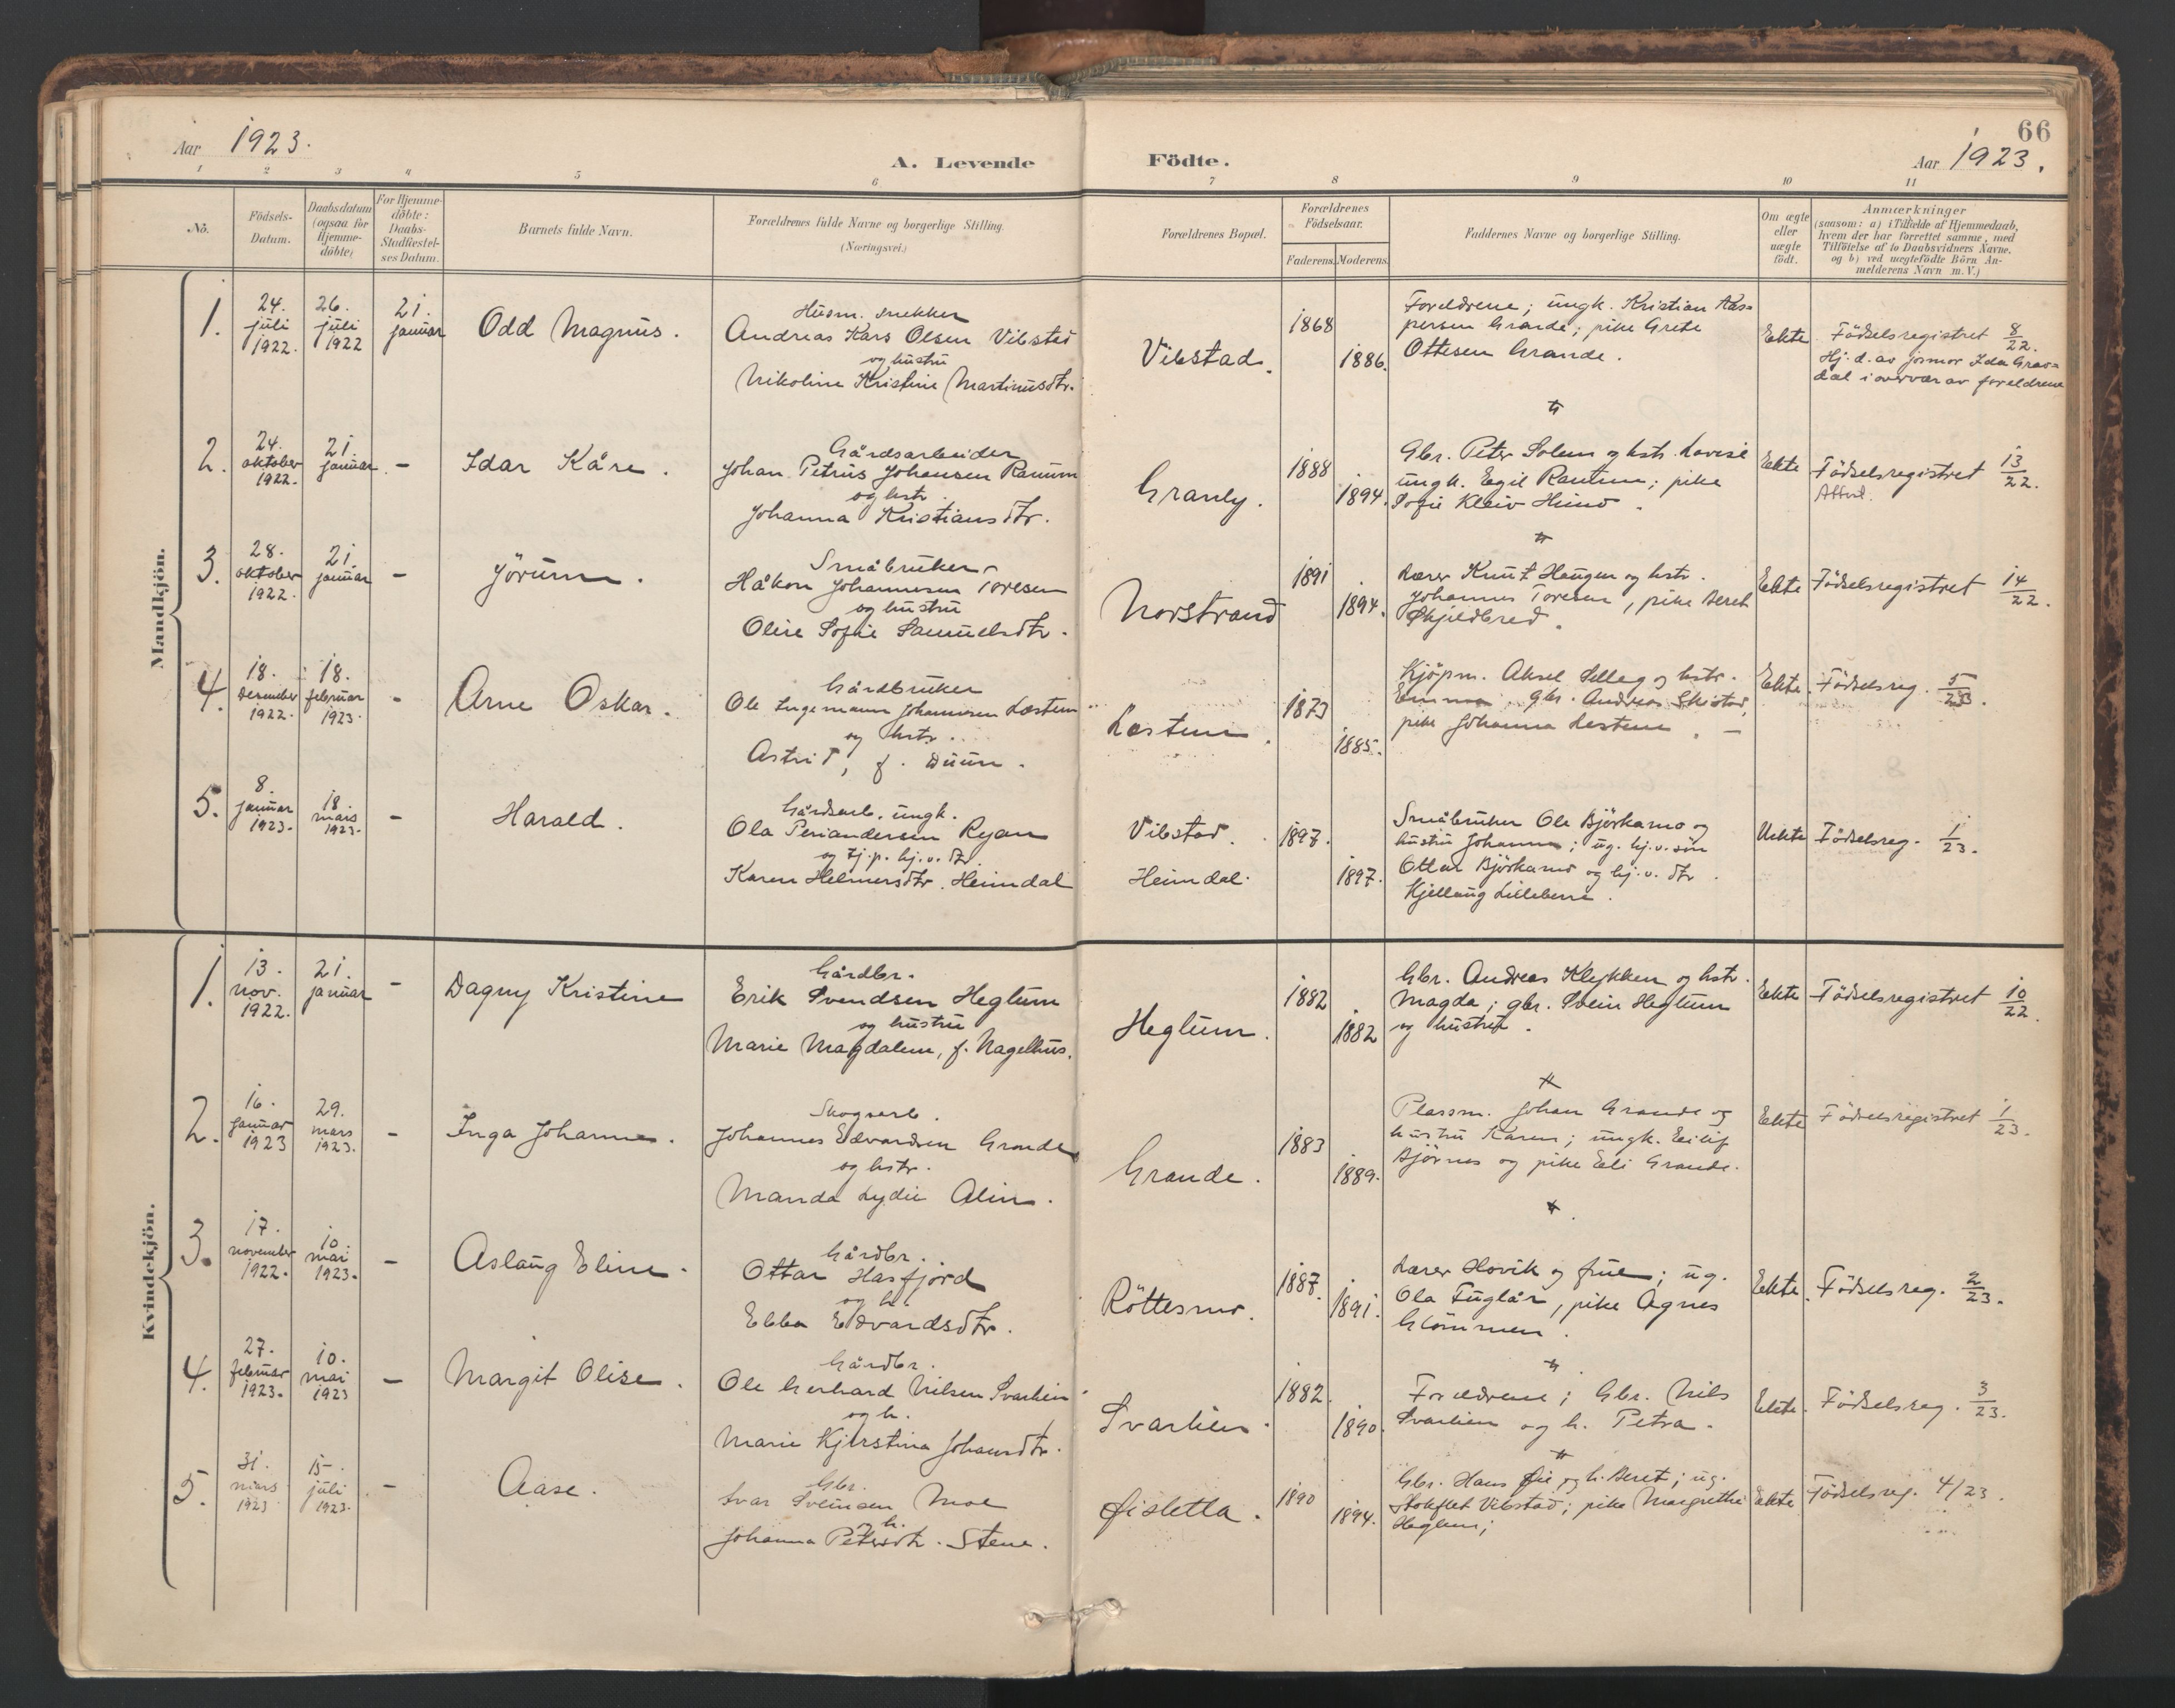 66
Aar 1923.
A. Levende Födte.
Aar 1923.
1 2 3 4 5 6 7 8 9 10 11
No.
Födsels-
Datum.
Daabsdatum
(ogsaa for
Hjemme-
döbte)
For Hjemme-
döbte:
Daabs-
Stadfæstel-
ses Datum.
Barnets fulde Navn.
Forældrenes fulde Navne og borgerlige Stilling.
(Næringsvei.)
Forældrenes Bopæl.
Forældrenes
Födselsaar.
Faderens. Moderens.
Faddernes Navne og borgerlige Stilling.
Om ægte
eller
uægte
födt.
Anmærkninger
(saasom: a) i Tilfælde af Hjemmedaab,
hvem der har forrettet samme, med
Tilföielse af to Daabsvidners Navne.
og b) ved uægtefödte Börn An-
melderens Navn m. V.)
Mandkjön.
1.
24.
juli
1922.
26.
juli
1922
21.
januar
Odd Magnus.
Husm. snekker
Andreas Kars Olsen Vibstad
og hustru
Nikoline Kristine Martinusdtr.
Vibstad.
1868
1886.
Foreldrene; ungk. Kristian Kas=
persen Grande; pike Grete
Ottesen Grande.
Ekte.
Födselsregistret 8/22.
Hj. d. av jormor Ida Grav=
dal i overvær av foreldrene
2.
24.
oktober
1922.
21.
januar
-
Idar Kåre.
Gårdsarbeider
Johan Petrus Johansen Ranum
og hstr.
Johanna Kristiansdtr.
Granly.
1888
1894.
Gbr. Peter Solem og hstr. Lovise
ungk. Egil Ranum; pike
Sofie Kleiv Hund.
Ekte
Födselsregistret 13/22.
Attest.
3.
28.
oktober
1922.
21.
januar
-
Jörum.
Småbruker
Håkon Johannesen Toresen
og hustru
Olise Sofie Samuelsdtr.
Norstrand
1891
1894.
Lærer Knut Haugen og hstr.
Johannes Toresen, pike Beret
Skjeldbred.
Ekte
Födselsregistret 14/22.
4.
18.
desember
1922.
18.
februar
1923.
-
Arne Oskar.
Gårdbruker
Ole Ingemann Johannesen Læstum
og hstr.
Astrid, f. Duun.
Læstum.
1873
1885.
Kjöpm. Aksel Selleg og hstr.
Emma, gbr. Andreas Skistad,
pike Johanna Lestum. -
Ekte.
Födselsreg. 5/23.
5.
8.
januar
1923.
18.
mars
1923.
-
Harald.
Gårdsarb. ungk.
Ola Periandersen Ryan
og tj.p. hj.v. dtr.
Karen Helmersdtr. Heimdal
Vibstad.
Heimdal.
1897.
1897.
Småbruker Ole Björkamo og
hustru Johanna; ug. hj.v. sön
Ottar Björkamo og hj.v. dtr.
Kjellaug Lilleberre.
Uekte
Födselsreg. 1/23.
Kvindekjön.
1.
13.
nov.
1922.
21.
januar
-
Dagny Kristine
Gårdbr.
Erik Svendsen Heglum
og hustru
Marie Magdalena, f. Nagelhus.
Heglum.
1882
1882
Gbr. Andreas Klykken og hstr.
Magda; gbr. Svein Heglum
og hustru.
Ekte
Födselsregistret 10/22
2.
16.
januar
1923
29.
mars
1923.
-
Inga Johanne.
Skogsarb.
Johannes Edvardsen Grande
og hstr.
Manda Lydie Alin.
Grande.
1883
1889.
Plassm. Johan Grande og
hustru Karen; ungk. Eilif
Björnes og pike Eli Grande.
Ekte
Födselsregistret 1/23.
3.
17.
november
1922.
10.
mai
1923.
-
Aslaug Eline.
Gårdbr.
Ottar Hasfjord
og h.
Ebba Edvardsdtr.
Röttesmo.
1887.
1891.
Lærer Hovik og frue; ug.
Ola Fuglår, pike Agnes
Glömmen.
Ekte.
Födselsreg. 2/23.
4.
27.
februar
1923.
10.
mai
1923
-
Margit Olise.
Gårdbr.
Ole Gerhard Nilsen Svarlien
og h.
Marie Kjerstina Johansdtr.
Svarlien.
1882.
1890.
Foreldrene; Gbr. Nils
Svarlien og h. Petra.
Ekte.
Födselsreg. 3/23.
5.
31.
mars
1923
15.
juli
1923.
-
Aase.
Gbr.
Ivar Sveinsen Moe
og h.
Johanna Petersdtr. Stene.
Øisletta.
1890
1894.
Gbr. Hans Øie og h. Beret; ug.
Stokflet Vibstad; pike Margrethe
Heglum;
Ekte
Födselsreg. 4/23.